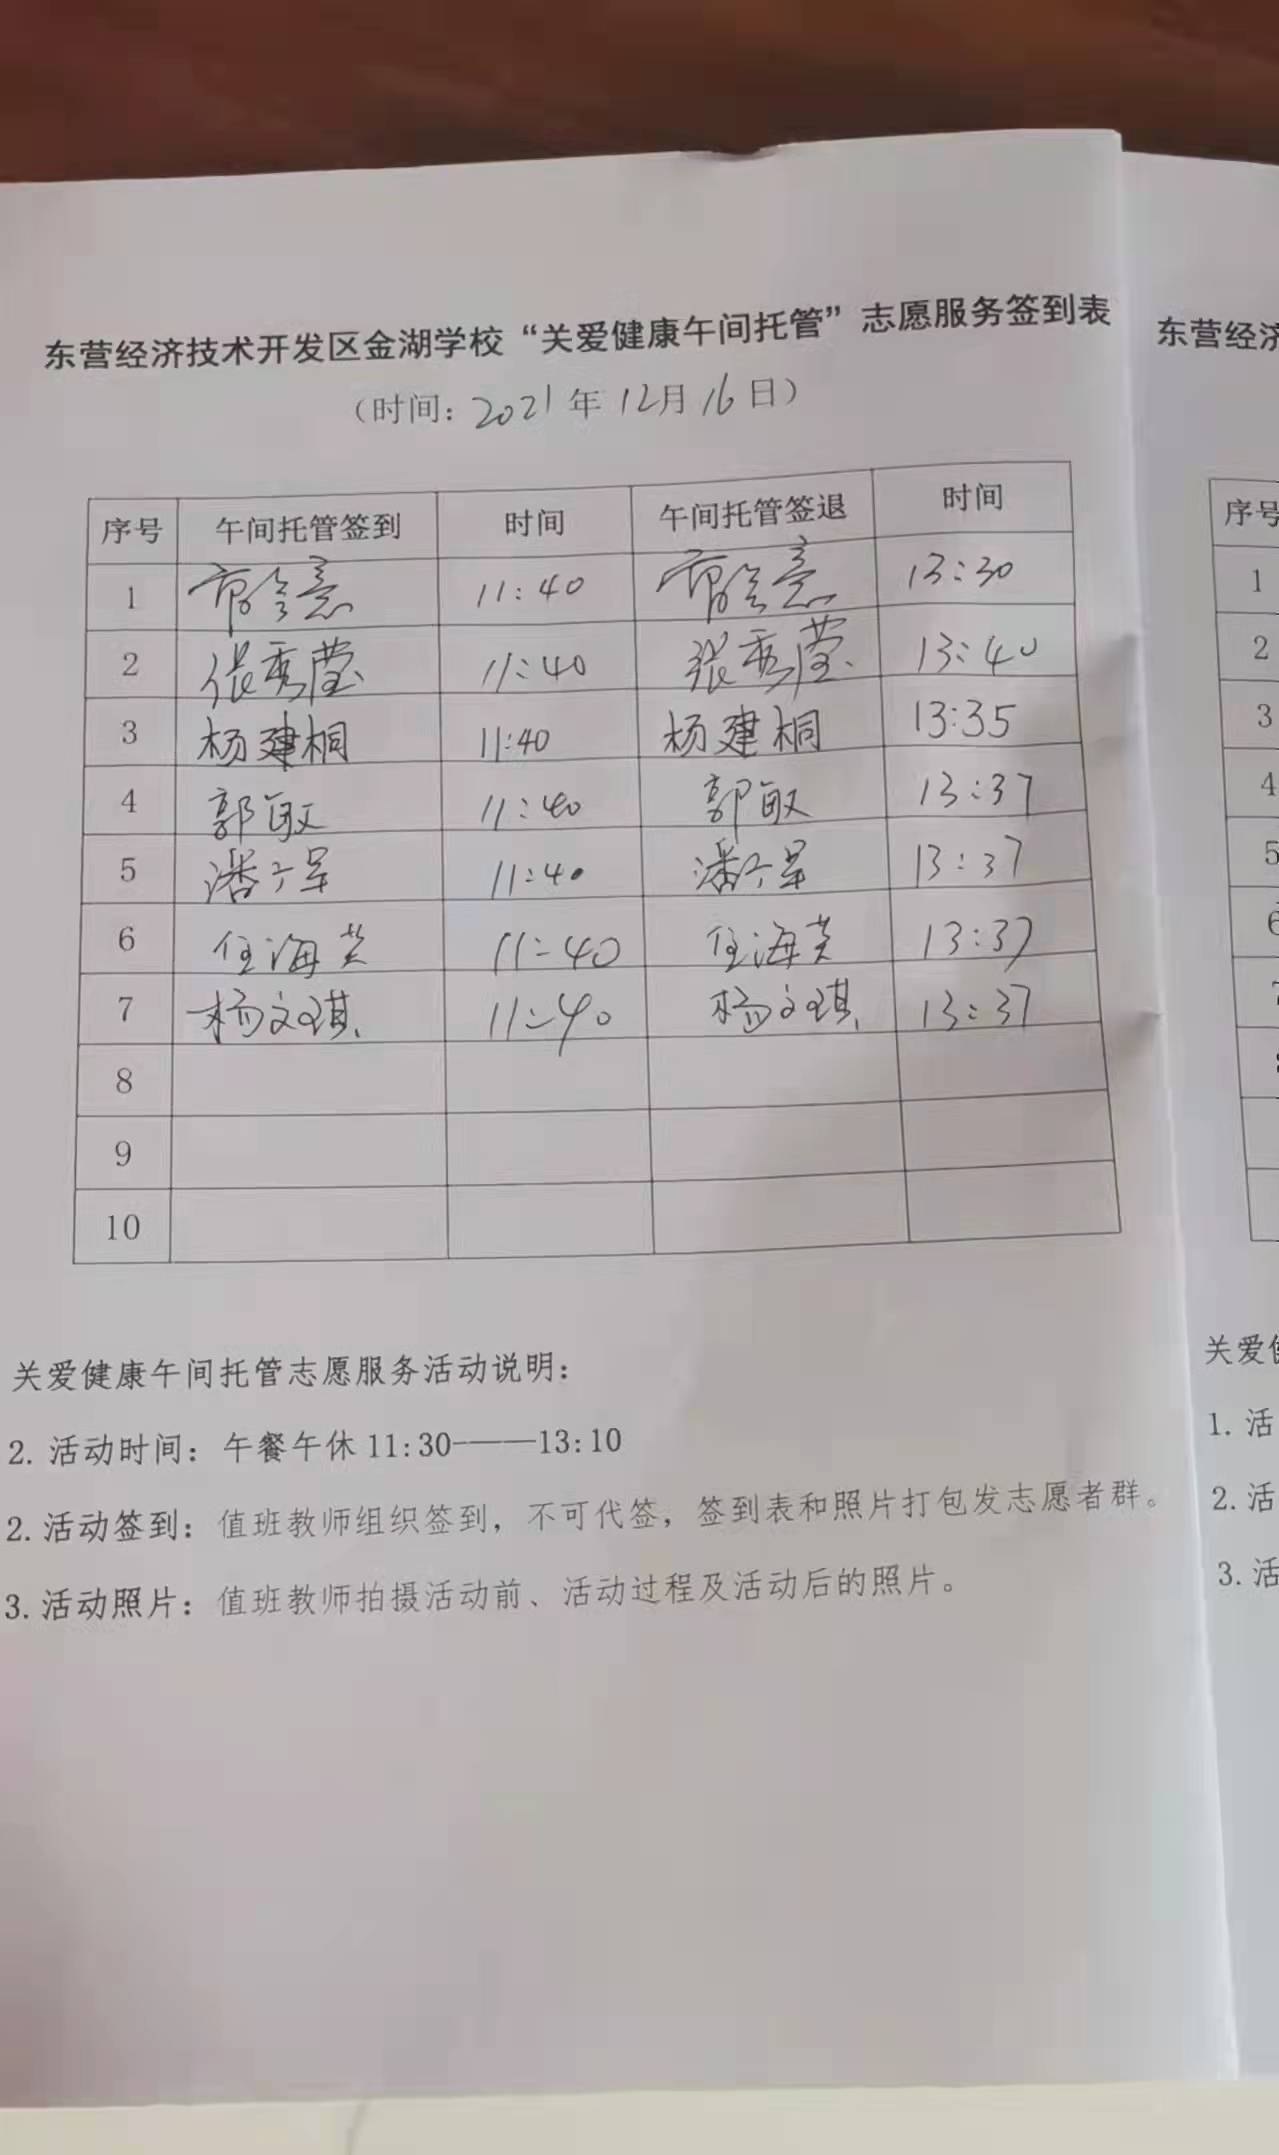 东营经济技术开发区金湖学校“关爱健康午间托管”志愿服务签到表
（时间：2021年12月16日）
序号 午间托管签到 时间 午间托管签退 时间
1 11:40 13:30
2 张秀莹 11:40 张秀莹 13:40
3 杨建桐 11:40 杨建桐 13:35
4 郭敏 11:40 郭敏 13:37
5 11:40 13:37
6 任海芝 11:40 任海芝 13:37
7 杨文琪 11:40 杨文琪 13:37
8
9
10
关爱健康午间托管志愿服务活动说明：
2. 活动时间：午餐午休 11:30——13:10
2. 活动签到：值班教师组织签到，不可代签，签到表和照片打包发志愿者群。
3. 活动照片：值班教师拍摄活动前、活动过程及活动后的照片。
东营经济
序号
1
2
3
4
5
6
7
关爱
1. 活
2. 活
3. 活